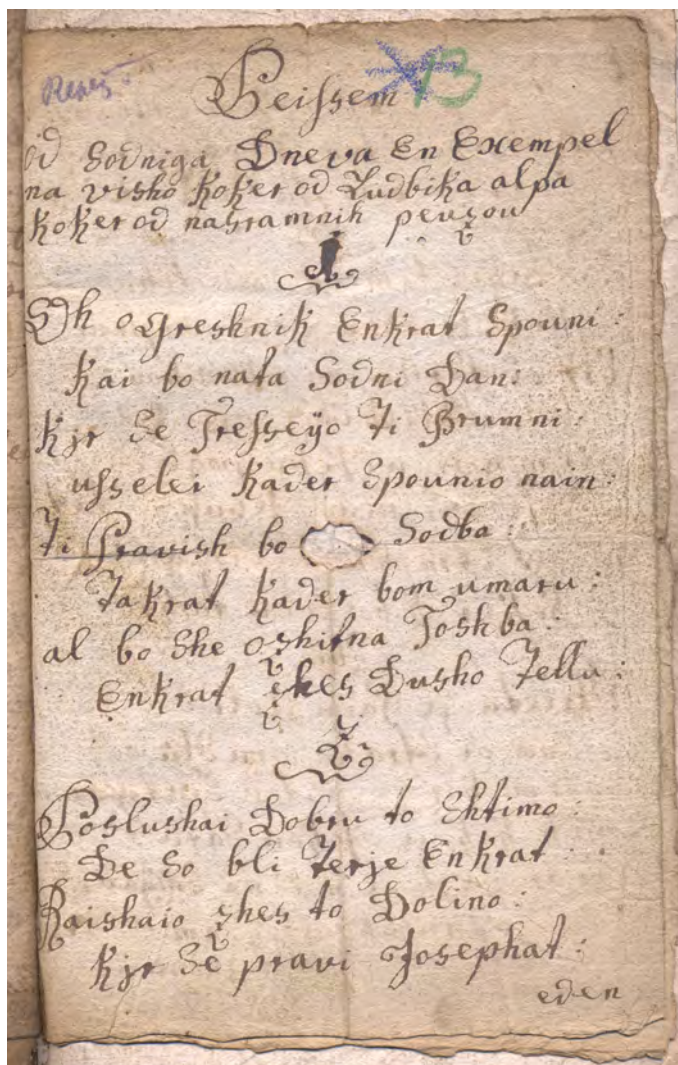 13
Peissem
od Sodniga Dneva En Exempel
na visho koker od Ludbika alpa
koker od nasramnih peuzou
1
Oh o Greshnik Enkrat Spouni:
kai bo nata Sodni Dan:
kjr Se Tresseyo Ti Brumni:
usselei kader Spounio nain:
Ti Pravish bo Sodba:
takrat kader bom umaru:
al bo She oshitna Toshba:
Enkrat zhes Dusho Tellu:
2
Poslushai Dobru to Shtimo:
De So bli Terje Enkrat:
Raishaio zhes to Dolino:
kjr Se pravi Josephat:
eden